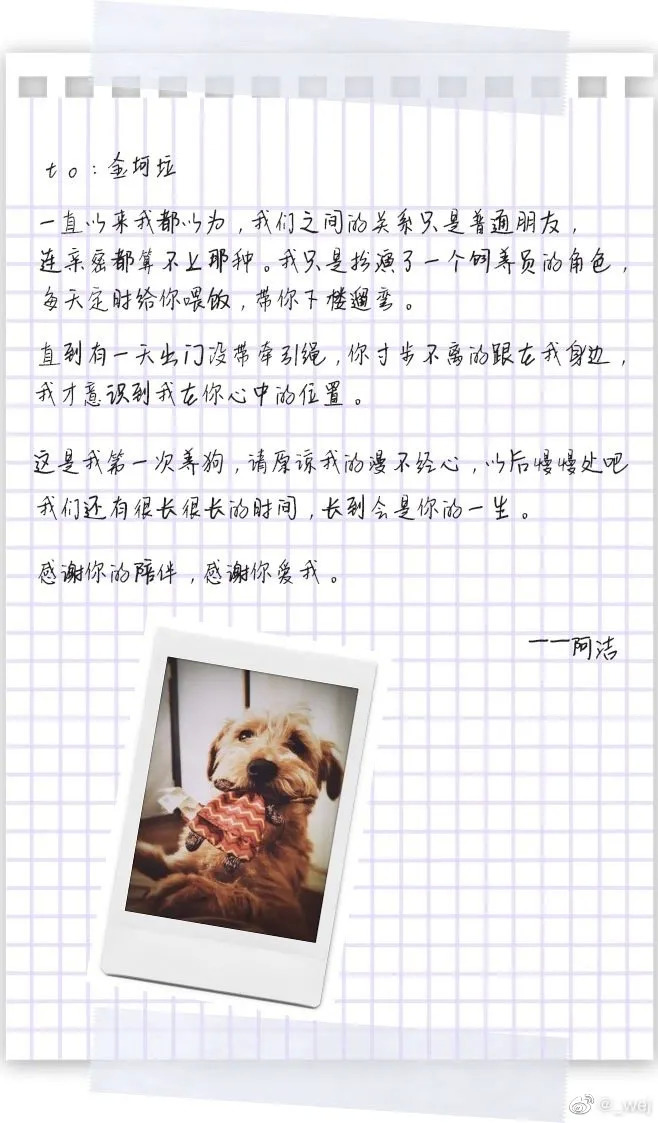 to：金坷垃
一直以来我都以为，我们之间的关系只是普通朋友，
连亲密都算不上那种。我只是扮演了一个饲养员的角色，
每天定时给你喂饭，带你下楼遛弯。
直到有一天出门没带牵引绳，你寸步不离的跟在我身边，
我才意识到我在你心中的位置。
这是我第一次养狗，请原谅我的漫不经心，以后慢慢处吧
我们还有很长很长的时间，长到会是你的一生。
感谢你的陪伴，感谢你爱我。
——阿洁
@_wej